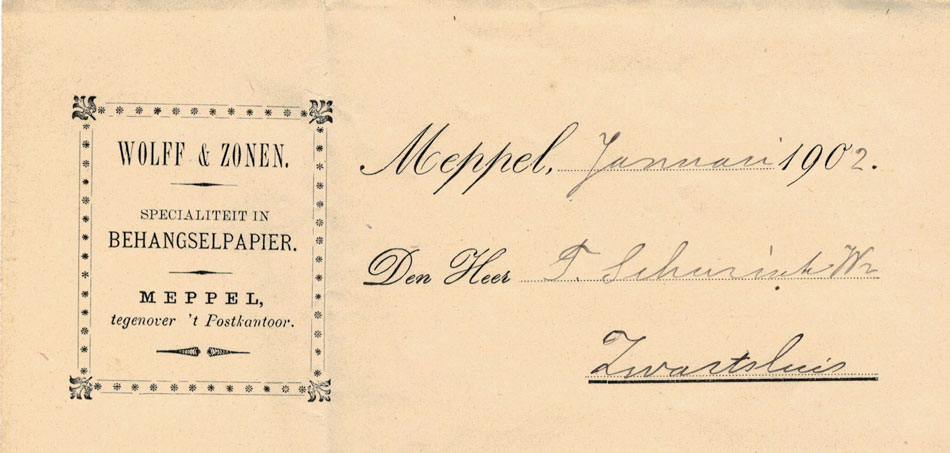 WOLFF & ZONEN.
SPECIALITEIT IN
BEHANGSELPAPIER.
MEPPEL,
tegenover 't Postkantoor.
Meppel, Januari 1902.
Den Heer T. Schurink Wz
Zwartsluis